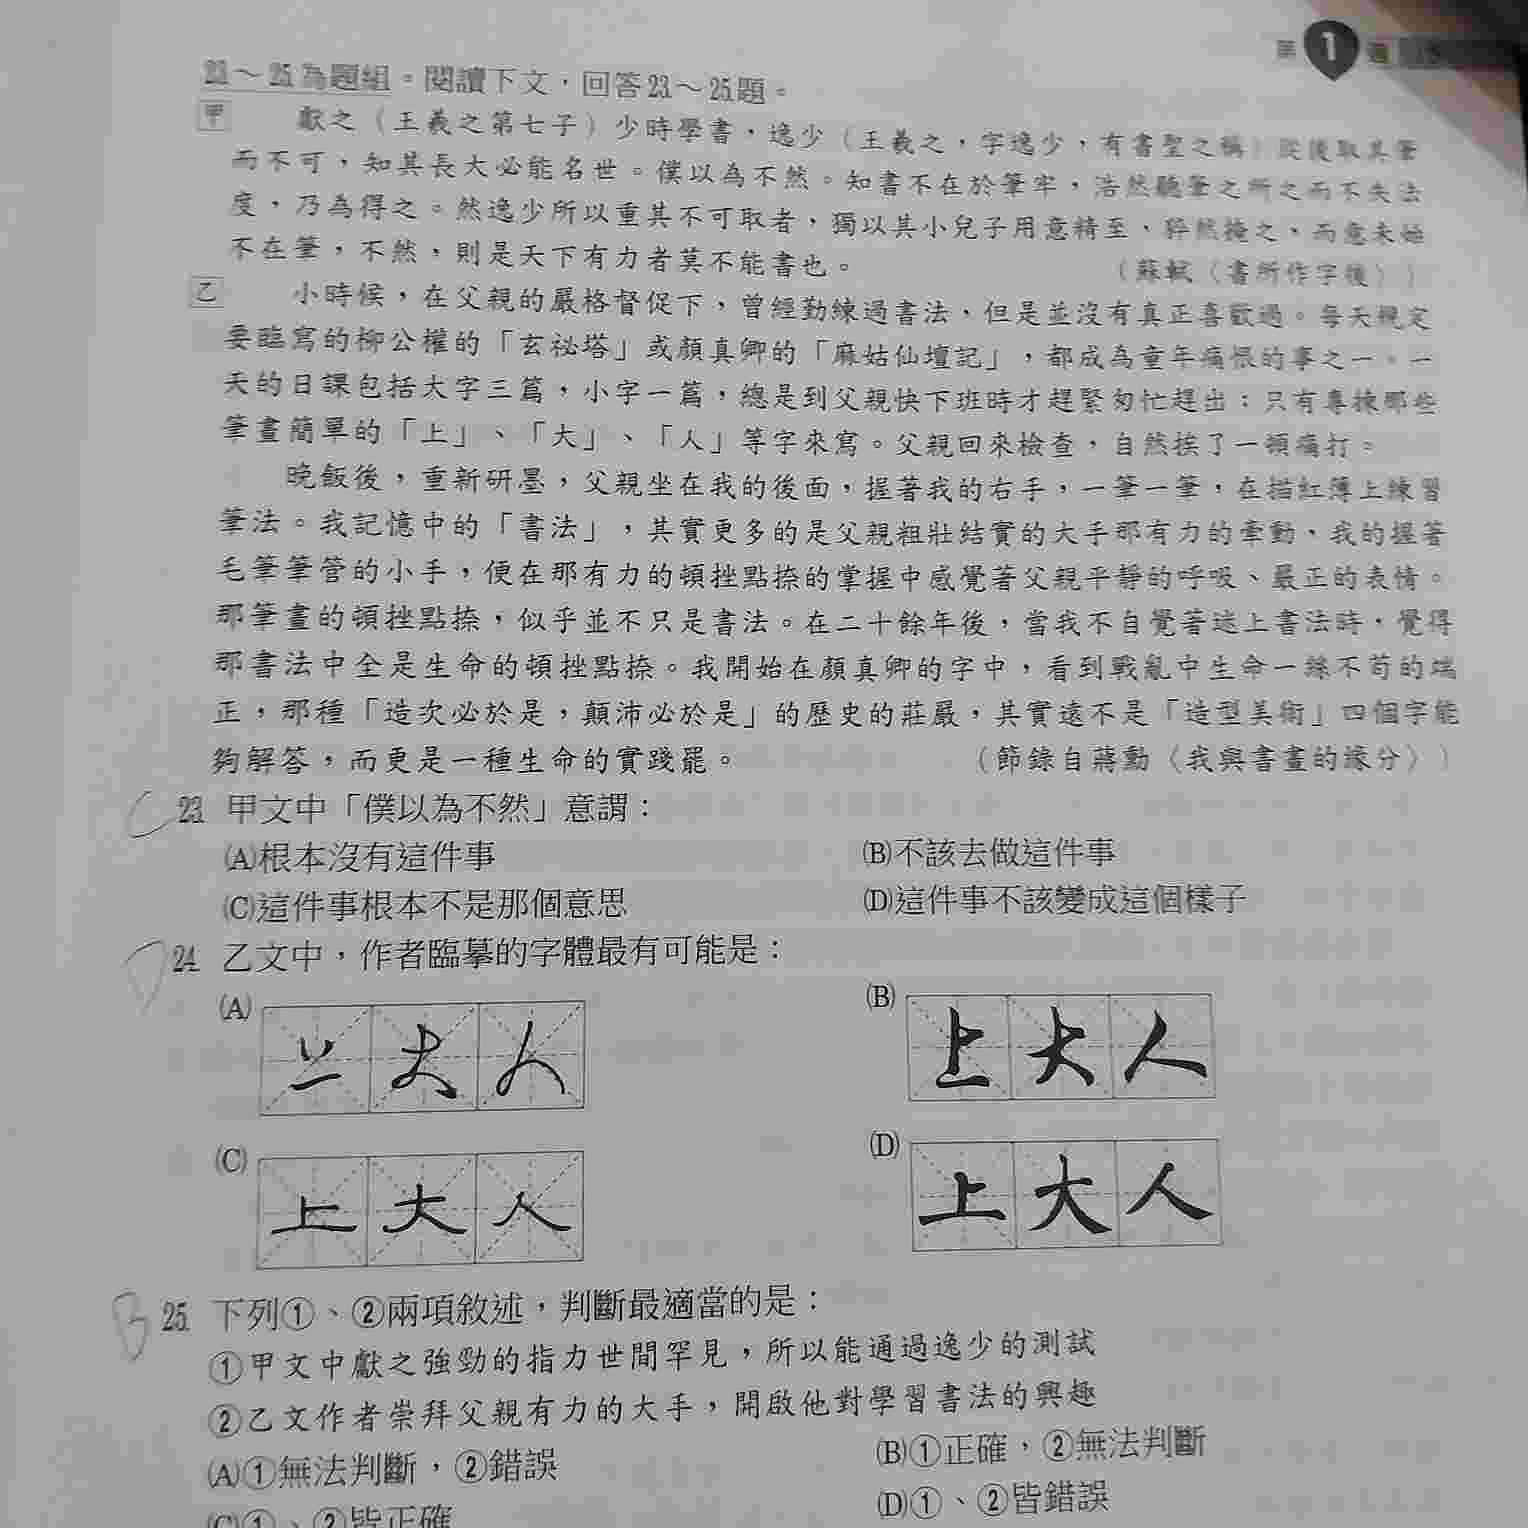 第1週
23～25為題組。閱讀下文，回答23～25題。
甲 獻之（王羲之第七子）少時學書，逸少（王羲之，字逸少，有書聖之稱）從後取其筆
而不可，知其長大必能名世。僕以為不然。知書不在於筆牢，浩然聽筆之所之而不失法
度，乃為得之。然逸少所以重其不可取者，獨以其小兒子用意精至，猝然掩之，而意未始
不在筆，不然，則是天下有力者莫不能書也。 （蘇軾〈書所作字後〉）
乙 小時候，在父親的嚴格督促下，曾經勤練過書法，但是並沒有真正喜歡過。每天規定
要臨寫的柳公權的「玄祕塔」或顏真卿的「麻姑仙壇記」，都成為童年痛恨的事之一。一
天的日課包括大字三篇，小字一篇，總是到父親快下班時才趕緊匆忙趕出：只有專揀那些
筆畫簡單的「上」、「大」、「人」等字來寫。父親回來檢查，自然挨了一頓痛打。
晚飯後，重新研墨，父親坐在我的後面，握著我的右手，一筆一筆，在描紅簿上練習
筆法。我記憶中的「書法」，其實更多的是父親粗壯結實的大手那有力的牽動，我的握著
毛筆筆管的小手，便在那有力的頓挫點捺的掌握中感覺著父親平靜的呼吸、嚴正的表情。
那筆畫的頓挫點捺，似乎並不只是書法。在二十餘年後，當我不自覺著迷上書法時，覺得
那書法中全是生命的頓挫點捺。我開始在顏真卿的字中，看到戰亂中生命一絲不苟的端
正，那種「造次必於是，顛沛必於是」的歷史的莊嚴，其實遠不是「造型美術」四個字能
夠解答，而更是一種生命的實踐罷。 （節錄自蔣勳〈我與書畫的緣分〉）
C 23. 甲文中「僕以為不然」意謂：
(A)根本沒有這件事 (B)不該去做這件事
(C)這件事根本不是那個意思 (D)這件事不該變成這個樣子
D 24. 乙文中，作者臨摹的字體最有可能是：
(A) 上大人 (B) 上大人
(C) 上大人 (D) 上大人
B 25. 下列①、②兩項敘述，判斷最適當的是：
①甲文中獻之強勁的指力世間罕見，所以能通過逸少的測試
②乙文作者崇拜父親有力的大手，開啟他對學習書法的興趣
(A)①無法判斷，②錯誤 (B)①正確，②無法判斷
(C)①、②皆正確 (D)①、②皆錯誤